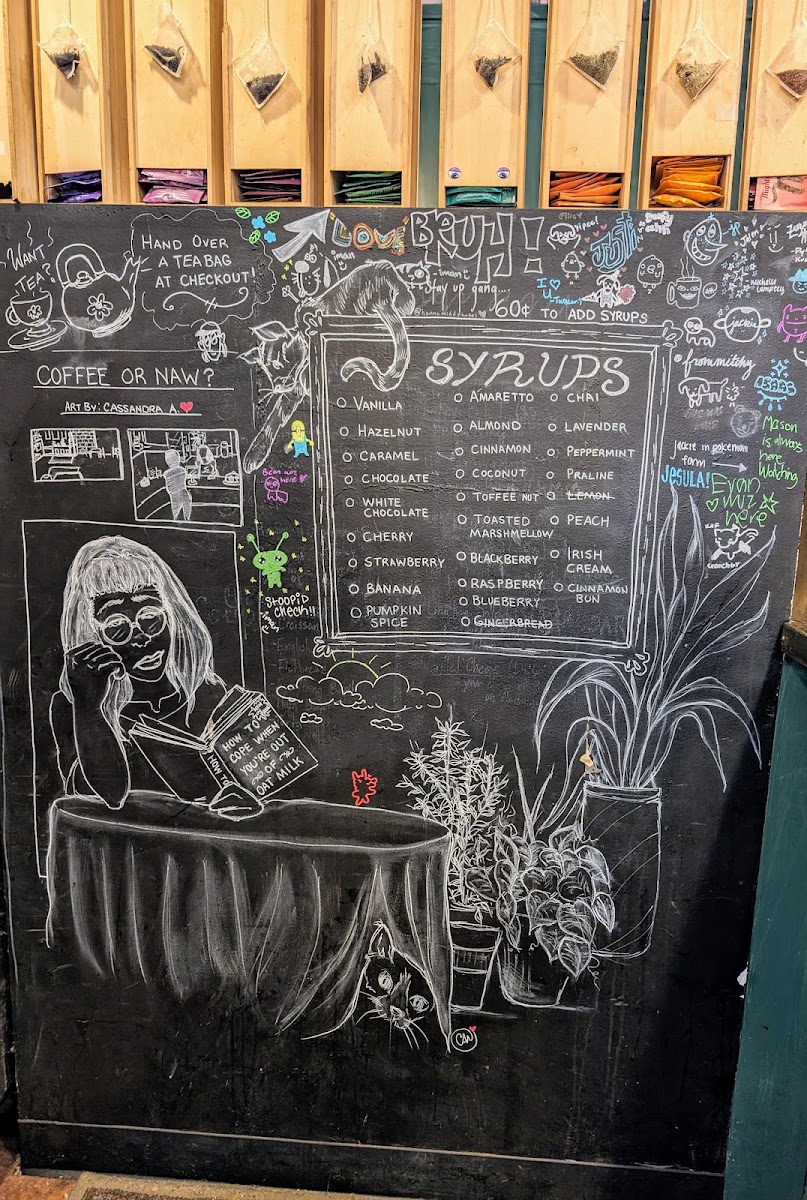 WANT
TEA?
HAND OVER
A TEA BAG
AT CHECKOUT!
LOVE
BRUH!
iman
stay up gang...
60¢ TO ADD SYRUPS
I ♡
U
COFFEE OR NAW?
ART BY: CASSANDRA A.
SYRUPS
VANILLA
HAZELNUT
CARAMEL
CHOCOLATE
WHITE
CHOCOLATE
CHERRY
STRAWBERRY
BANANA
PUMPKIN
SPICE
AMARETTO
ALMOND
CINNAMON
COCONUT
TOFFEE NUT
TOASTED
MARSHMELLOW
BLACKBERRY
RASPBERRY
BLUEBERRY
GINGERBREAD
CHAI
LAVENDER
PEPPERMENT
PRALINE
LEMON
PEACH
IRISH
CREAM
CINNAMON
BUN
Jackie
frommitchy
ISAAC
Mason
is always
here
Watching
Jackie in pokemon
form
JESULA!
Evan
wuz
here
Bean was
here
stoopid
check!!
HOW TO
COPE WHEN
YOU'RE OUT
OF
OAT MILK
HOW TO
CAN